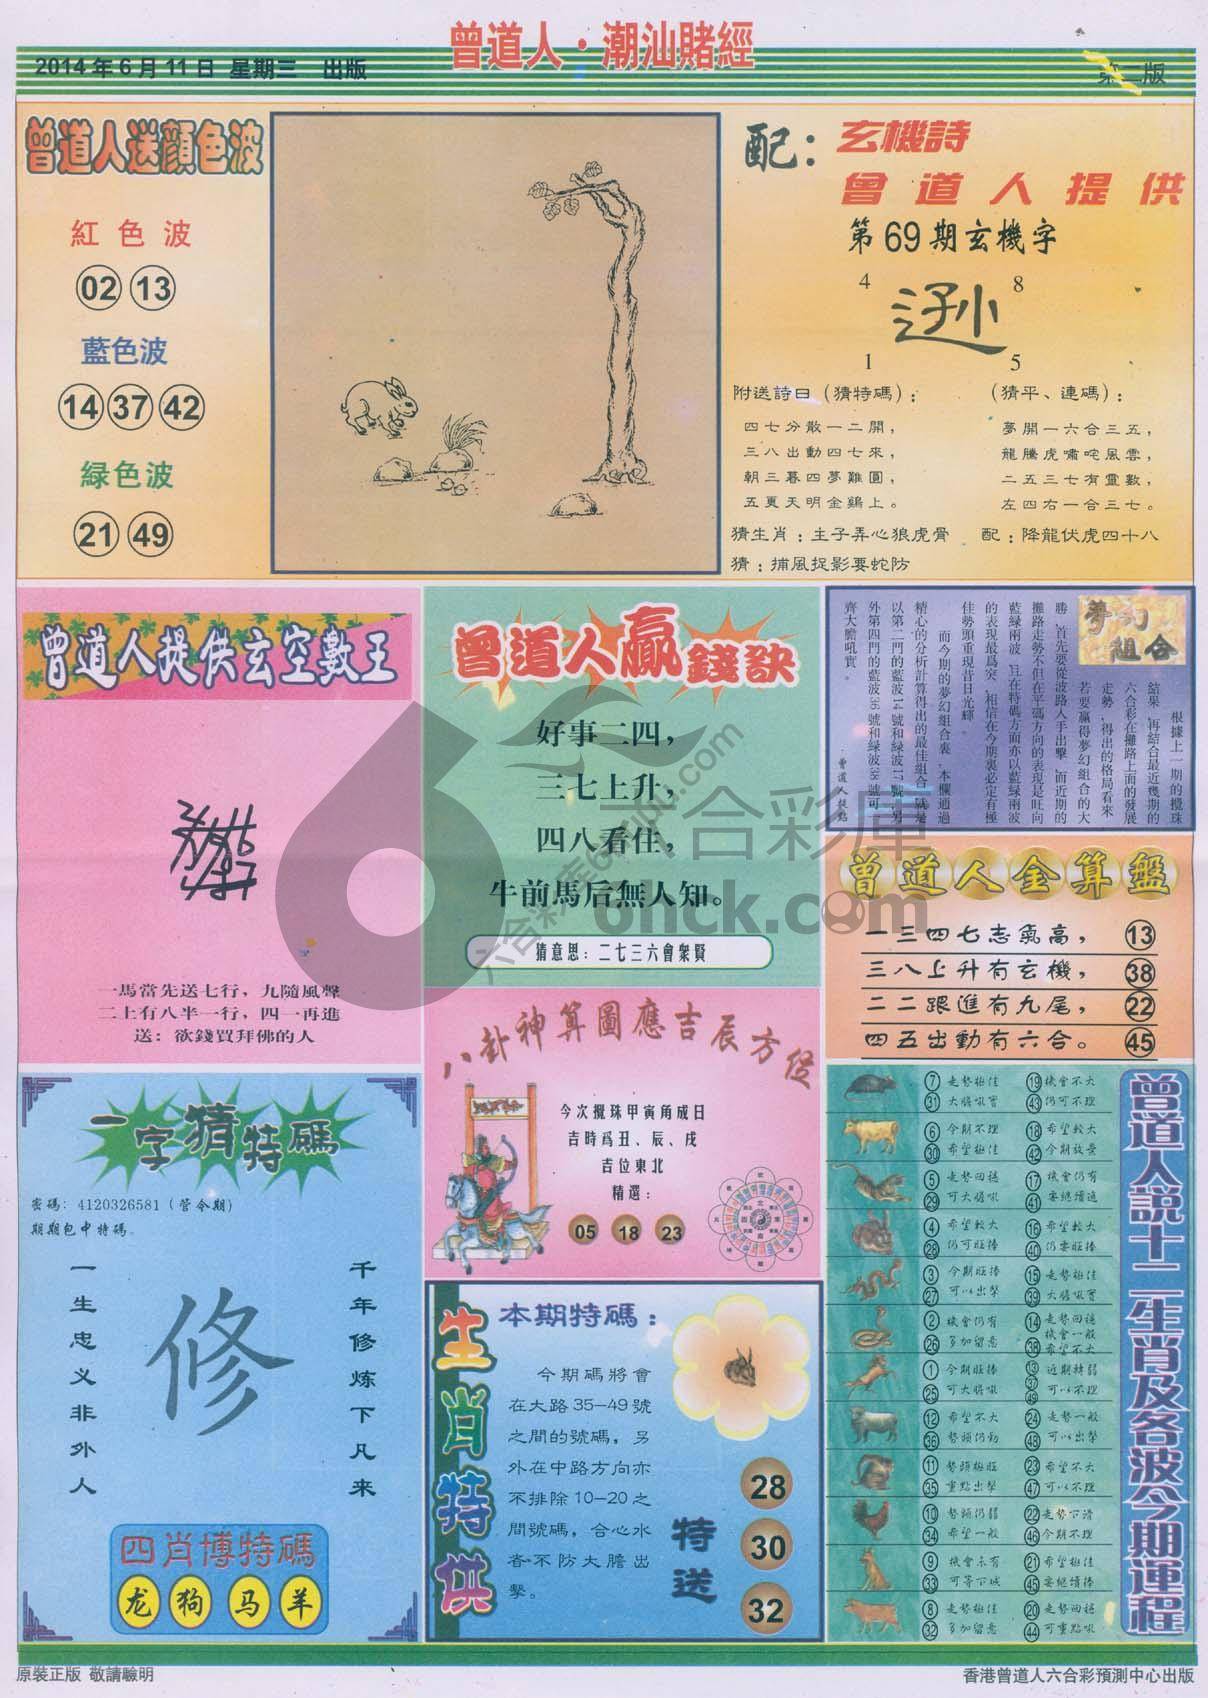 曾道人·潮汕賭經
2014年6月11日 星期三 出版
第二版
曾道人送顔色波
紅色波
02 13
藍色波
14 37 42
緑色波
21 49
配：
玄機詩
曾道人提供
第69期玄機字
4 8
1 5
附送詩曰（猜特碼）：
四七分散一二開，
三八出動四七來，
朝三暮四夢難圓，
五更天明金鷄上。
（猜平、連碼）：
夢開一六合三五，
龍騰虎嘯咤風雲，
二五三七有靈數，
左四右一合三七。
猜生肖：生子弄心狼虎骨 配：降龍伏虎四十八
猜：捕風捉影要蛇防
曾道人提供玄空數王
一馬當先送七行，九隨風聲
二上有八半一行，四一再進
送：欲錢買拜佛的人
曾道人贏錢訣
好事二四，
三七上升，
四八看住，
牛前馬后無人知。
猜意思：二七三六會衆賢
夢幻組合
根據上一期的攪珠
結果，再結合最近幾期的
六合彩在攤路上面的發展
走勢，得出的格局看來，
若要贏得夢幻組合的大
勝，首先要從波路人手出擊，而近期的
攤路走勢不但在平碼方向的表現是旺向
藍緑兩波，且在特碼方面亦以藍緑兩波
的表現最爲突，相信在今期裏必定有極
佳勢頭重現昔日光輝。
而今期的夢幻組合裏，本欄通過
精心的分析計算得出的最佳組合，就是
以第二門的藍波14號和緑波17號，另
外第四門的藍波36號和緑波38號可
齊大膽吼實。
曾道人提點
曾道人金算盤
一三四七志氣高， 13
三八上升有玄機， 38
二二跟進有九尾， 22
四五出動有六合。 45
八卦神算圖應吉辰方位
今次攪珠甲寅角成日
吉時爲丑、辰、戌
吉位東北
精選：
05 18 23
一字猜特碼
密碼：4120326581（管令期）
期期包中特碼。
一生忠义非外人
修
千年修炼下凡来
四肖博特碼
龙 狗 马 羊
生肖特供
本期特碼：
今期碼將會
在大路35—49號
之間的號碼，另
外在中路方向亦
不排除10—20之
間號碼，合心水
者不防大膽出
擊。
特送
28
30
32
曾道人説十二生肖及各波今期運程
7 走勢極佳 19 機會不大
31 大膽吼實 43 仍可不理
6 今期不理 18 希望較大
30 希望極佳 42 今期放棄
5 走勢回穩 17 機會仍有
29 可大膽吼 41 要繼續追
4 希望較大 16 希望較大
28 仍可旺捧 40 仍要旺捧
3 今期旺捧 15 走勢極佳
27 可以出擊 39 大膽吼實
2 機會仍有 14 走勢回穩
26 多加留意 機會一般
38 希望不大
1 今期旺捧 13 近期轉弱
25 可大膽吼 37 49 可以不理
12 希望不大 24 走勢一般
36 勢頭仍勁 48 可以出擊
11 勢頭極旺 23 希望不大
35 重點出擊 47 可以不理
10 勢頭仍弱 22 走勢下滑
34 希望一般 46 今期不理
9 機會未有 21 希望極佳
33 可等下域 45 要繼續捧
8 走勢極佳 20 走勢回穩
32 多加留意 44 可重點吼
六合彩庫
6hck.com
原裝正版 敬請驗明
香港曾道人六合彩預測中心出版